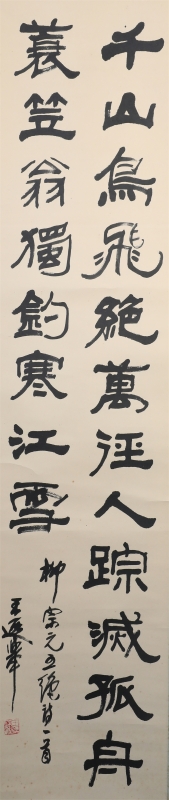 千山鳥飛絕萬徑人踪滅孤舟
蓑笠翁獨釣寒江雪
柳宗元五絕詩一首
王遐舉